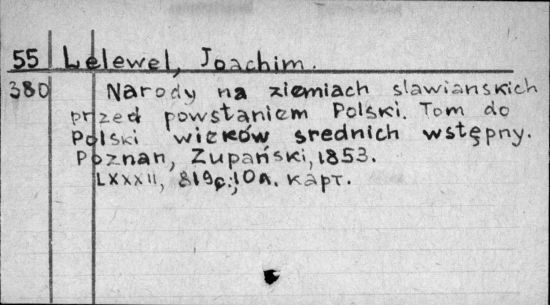 55 Lelewel, Joachim.
380 Narody na ziemiach slawianskich
przed powstaniem Polski. Tom do
Polski wieków srednich wstępny.
Poznan, Zupański, 1853.
LXXXII, 819c.; 10л. карт.